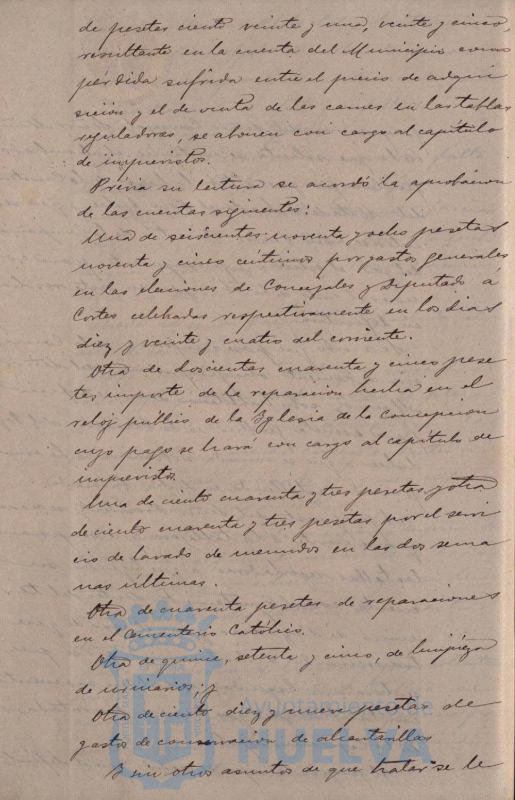 de pesetas ciento veinte y una, veinte y cinco,
resultante en la cuenta del Municipio como
pérdida sufrida entre el precio de adqui
sición y el de venta de las carnes en las tablas
reguladoras, se abonen con cargo al capítulo
de imprevistos.
Prévia su lectura se acordó la aprobacion
de las cuentas siguientes:
Una de seiscientas noventa y ocho pesetas
noventa y cinco céntimos por gastos generales
en las elecciones de Concejales y Diputado á
Cortes celebradas respectivamente en los dias
diez y veinte y cuatro del corriente.
Otra de doscientas cuarenta y cinco pese
tas importe de la reparacion hecha en el
reloj público de la Yglesia de la Concepcion
cuyo pago se hará con cargo al capítulo de
imprevistos.
Una de ciento cuarenta y tres pesetas y otra
de ciento cuarenta y tres pesetas por el servi
cio de lavado de menudos en las dos sema
nas últimas.
Otra de cuarenta pesetas de reparaciones
en el Cementerio Católico.
Otra de quince, setenta y cinco, de limpieza
de urinarios; y
Otra de ciento diez y nueve pesetas de
gastos de conservacion de alcantarillas
Y sin otros asuntos de que tratar se le
Ayuntamiento de
HUELVA